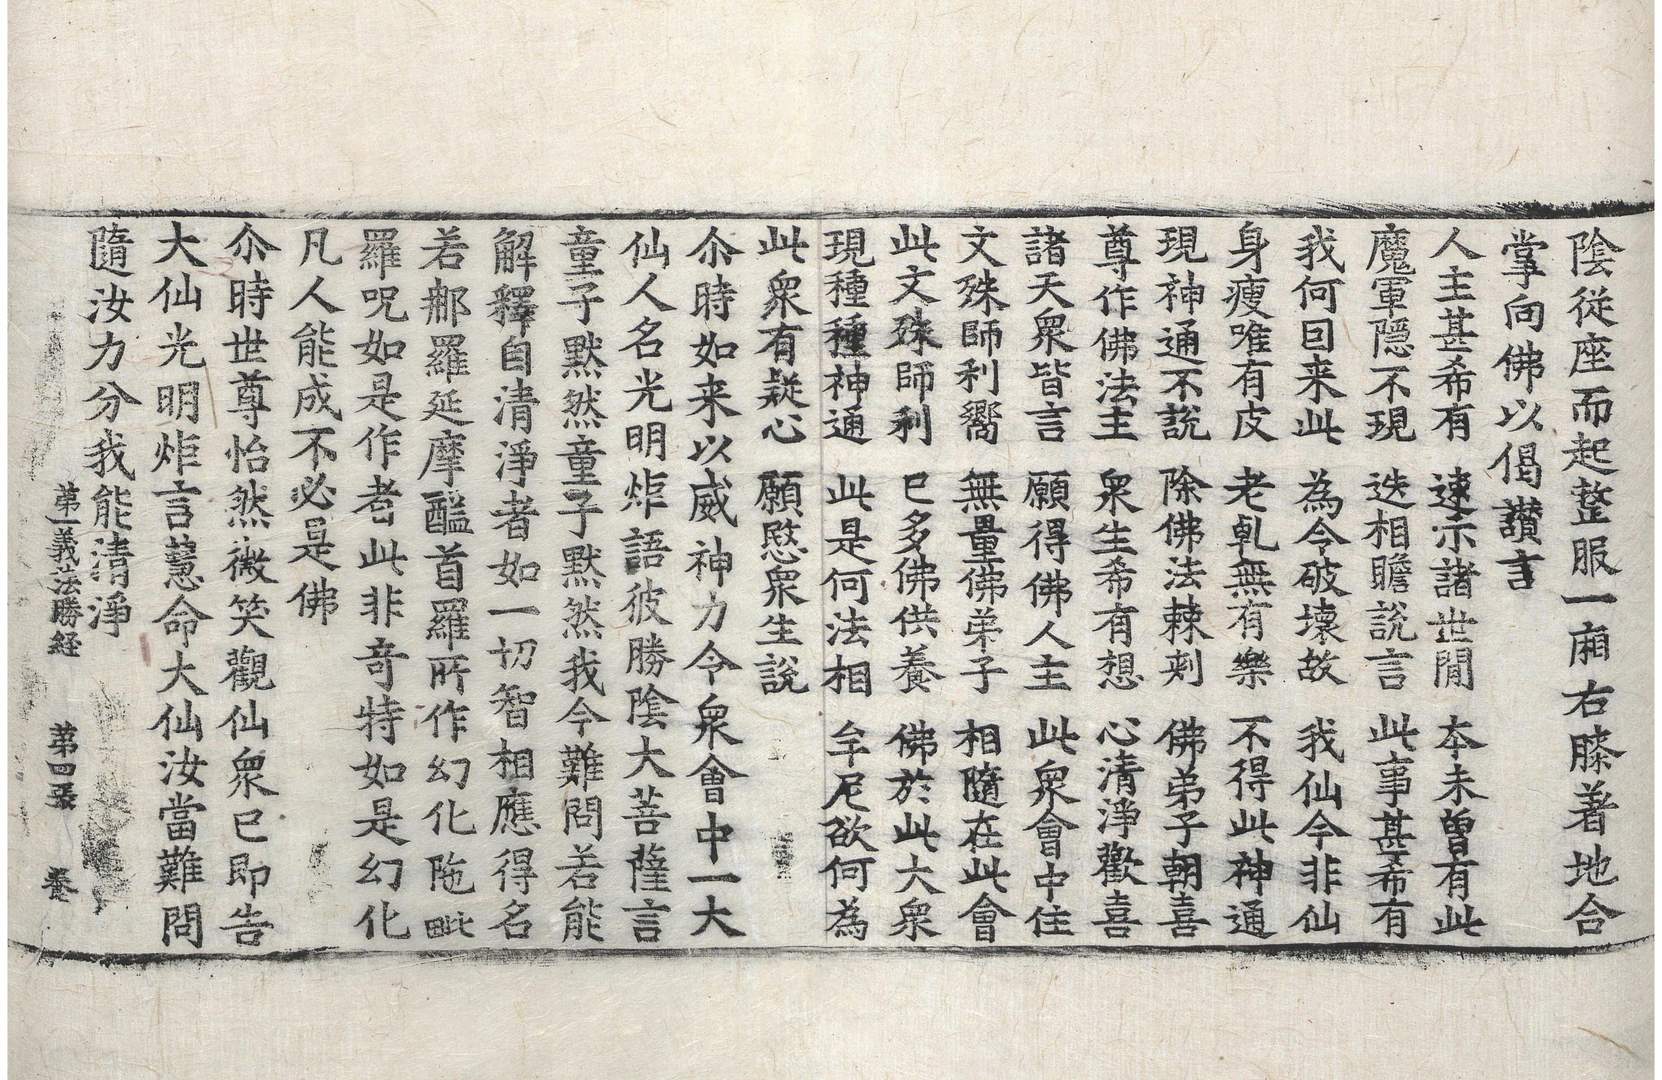 陰従座而起整服一廂右膝著地合
掌向佛以偈讃言
人主甚希有　速示諸世間　本未曽有此
魔軍隠不現　迭相瞻説言　此事甚希有
我何因来此　為今破壊故　我仙今非仙
身瘦唯有皮　老乹無有樂　不得此神通
現神通不説　除佛法棘刾　佛弟子朝喜
尊作佛法主　衆生希有想　心清淨歡喜
諸天衆皆言　願得佛人主　此衆會中住
文殊師利嚮　無量佛弟子　相隨在此會
此文殊師利　已多佛供養　佛於此大衆
現種種神通　此是何法相　牟尼欲何為
此衆有疑心　願愍衆生説
尒時如来以威神力令衆會中一大
仙人名光明炬語彼勝陰大菩薩言
童子黙然童子黙然我今難問若能
解釋自清淨者如一切智相應得名
若那羅延摩醯首羅所作幻化陁毗
羅呪如是作者此非竒特如是幻化
凡人能成不必是佛
尒時世尊怡然微笑觀仙衆已即告
大仙光明炬言慧命大仙汝當難問
隨汝力分我能清淨
第一義法勝経　第四張　養